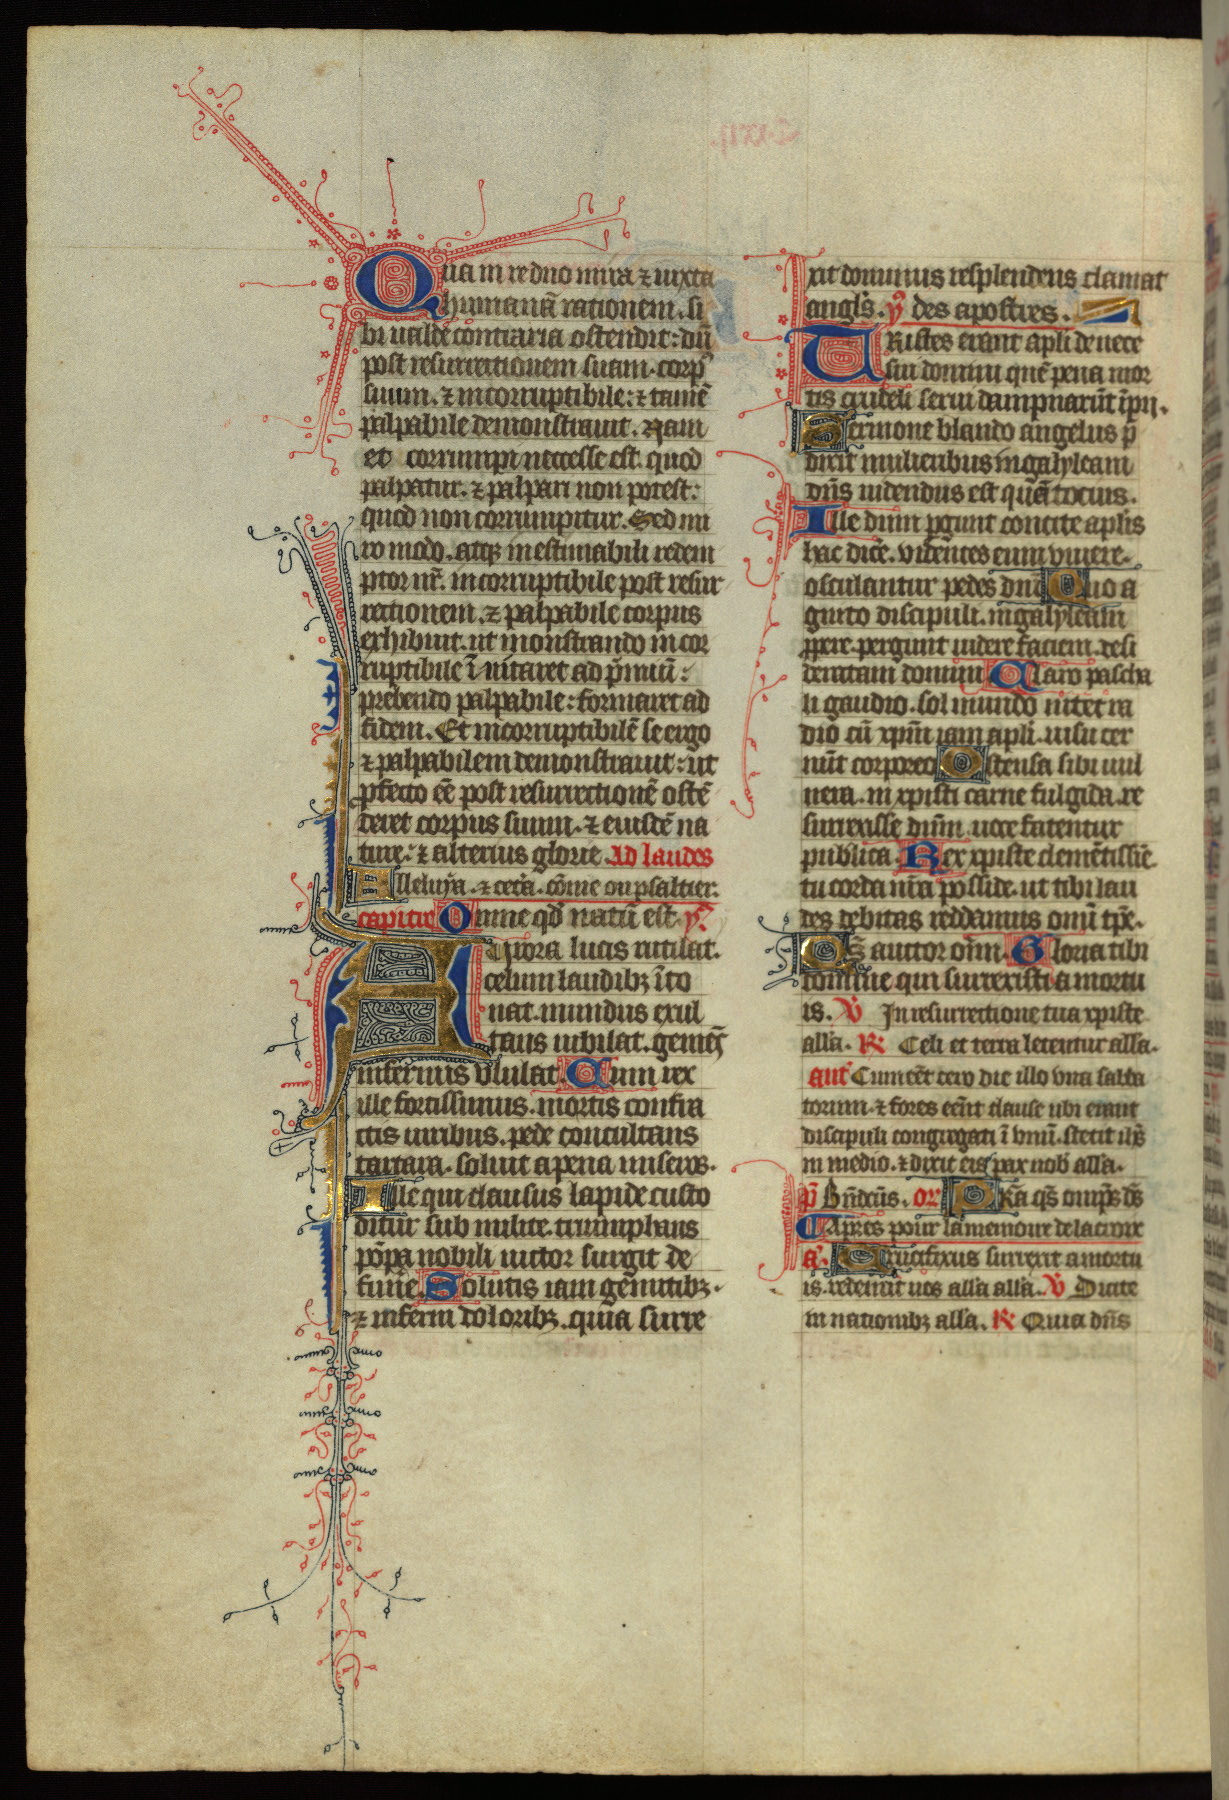 Qua in re dno mira ⁊ iuxta
humanā rationem. si
bi ualde contraria ostendit: dū
post resurrectionem suam. corpꝰ
suum. ⁊ incorruptibile: ⁊ tamē
palpabile demonstrauit. Nam
et corrumpi necesse est. quod
palpatur. ⁊ palpari non potest:
quod non corrumpitur. Sed mi
ro modo. atqꝫ inestimabili redem
ptor nr̄. incorruptibile post resur
rectionem. ⁊ palpabile corpus
exhibuit. ut monstrando incor
ruptibile ī uitaret ad p̄miū:
prebendo palpabile: formaret ad
fidem. Et incorruptibilē se ergo
⁊ palpabilem demonstrauit: ut
ꝓfecto eē post resurrectionē ostē
deret corpus suum. ⁊ eiusdē na
ture: ⁊ alterius glorie. Ad laudes
Alleluya. ⁊ cetᷓa. cōme ou psaltier.
capitre Omne qd̄ natū est. ym̄
Aurora lucis rutilat.
celum laudibꝫ īto
nat. mundus exul
tans iubilat. gemēs
infernus vlulat. Cum rex
ille fortissimus. mortis confra
ctis uiribus. pede conculcans
tartara. soluit a pena miseros.
Ille qui clausus lapide custo
ditur sub milite. triumphans
pōpa nobili uictor surgit de
funere. Solutis iam gemitibꝫ.
⁊ inferni doloribꝫ. quia surre
xit dominus resplendens clamat
angl̄s. ym̄ des apostres.
Tristes erant apl̄i de nece
sui domini quē pena mor
tis crudeli serui dampnarūt īpij.
Sermone blando angelus p̄
dixit mulieribus in galyleam
dn̄s uidendus est quātocius.
Ille dum ꝑgunt concite apl̄is
hac dicē. videntes eum viuere.
osculantur pedes dnī. Quo a
gnito discipuli. in galyleam
ꝓpere. pergunt uidere faciem. desi
deratam domini. Claro pascha
li gaudio. sol mundo nitet ra
dio cū xpm̄ iam apl̄i. uisu cer
nūt corporeo. Ostensa sibi uul
nera. in xpisti carne fulgida. re
surrexisse dnm̄. uoce fatentur
publica. Rex xpiste clemētissīe.
tu corda nr̄a posside. ut tibi lau
des debitas reddamus omī tp̄e.
Ds̄ auctor oīm. Gloria tibi
domine qui surrexisti a mortu
is. V In resurrectione tua xpiste
all'a. R Celi et terra letentur all'a.
ant' Cum eēt cero die illo vna sabba
torum. ⁊ fores eēnt clause ubi erant
discipuli congregati ī vnū. stetit ih̄s
in medio. ⁊ dixit eis pax nob̄ all'a.
p̄ Bn̄dcūs. or Pr̄a qs̄ omp̄s ds̄
Apres pour la memoire de la croix
a'. Crucifixus surrexit a mortu
is. redemit nos all'a all'a. V Dicite
in nationibꝫ all'a. R Quia dn̄s